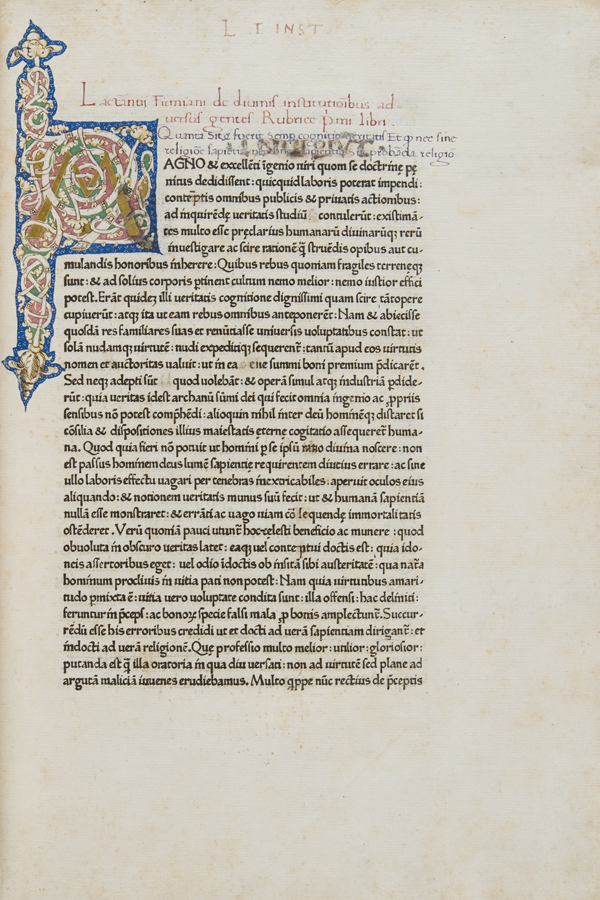 L I INST
Lactantii Firmiani de diuinis institutiõibus ad
uersus gentes Rubrice p̃mi libri .
Quanta sit & fuerit semp cognitio ueritatis Et q̃ nec sine
religiõe sapientia nec sine sapientia sit probãda religio
MAGNO & excellẽti ĩgenio uiri quom se doctrinę pę
nitus dedidissent : quicquid laboris poterat impendi :
contẽptis omnibus publicis & priuatis actionibus :
ad inquirẽdę ueritatis studiũ contulerũt : existimã-
tes multo esse pręclarius humanarũ diuinarũq; rerũ
inuestigare ac scire rationẽ q̃ struẽdis opibus aut cu-
mulandis honoribus inherere : Quibus rebus quoniam fragiles terreneq;
sunt : & ad solius corporis ꝑtinent cultum nemo melior : nemo iustior effici
potest. Erãt quidẽ illi ueritatis cognitione dignissimi quam scire tãtopere
cupiuerũt : atq; ita ut eam rebus omnibus anteponerẽt : Nam & abiecisse
quosdã res familiares suas et renũtiasse uniuersis uoluptatibus constat : ut
solã nudamq; uirtutẽ : nudi expeditiq; sequerent̃ : tantũ apud eos uirtutis
nomen et auctoritas ualuit : ut in ea ene summi boni premium p̃dicarẽt .
Sed neq; adepti sũt quod uolebãt : & operã simul atq; industriã ꝑdide-
rũt : quia ueritas idest archanũ sũmi dei qui fecit omnia ingenio ac ꝓpriis
sensibus nõ potest comp̃hẽdi : alioquin nihil inter deũ hominẽq; distaret si
cõsilia & dispositiones illius maiestatis eternę cogitatio assequeret̃ huma-
na. Quod quia fieri nõ potuit ut homini ꝑ se ipsũ ratio diuina nosceret : non
est passus hominem deus lumẽ sapientię requirentem diutius errare : ac sine
ullo laboris effectu uagari per tenebras inextricabiles : aperuit oculos eius
aliquando : & notionem ueritatis munus suũ fecit : ut & humanã sapientiã
nullã esse monstraret : & errãti ac uago uiam cõsequendę immortalitatis
ostẽderet . Verũ quoniã pauci utunt̃ hoc cęlesti beneficio ac munere : quod
obuoluta in obscuro ueritas latet : eaq; uel contemptui doctis est : quia ido-
neis assertoribus eget : uel odio ĩdoctis ob insitã sibi austeritatẽ : quã nat̃a
hominum procliuis in uitia pati non potest : Nam quia uirtutibus amari-
tudo ꝑmixta ẽ : uitia uero uoluptate condita sunt : illa offensi : hac deliniti :
feruntur in p̃ceps : ac bonoꝝ specie falsi mala ꝓ bonis amplectunt̃. Succur-
rẽdũ esse his erroribus credidi ut et docti ad uerã sapientiam dirigant̃ : et
indocti ad uerã religionẽ. Quę professio multo melior : utilior : gloriosior :
putanda est q̃ illa oratoria in qua diu uersati : non ad uirtutẽ sed plane ad
argutã maliciã iuuenes erudiebamus. Multo q̃ppe nũc rectius de p̃ceptis